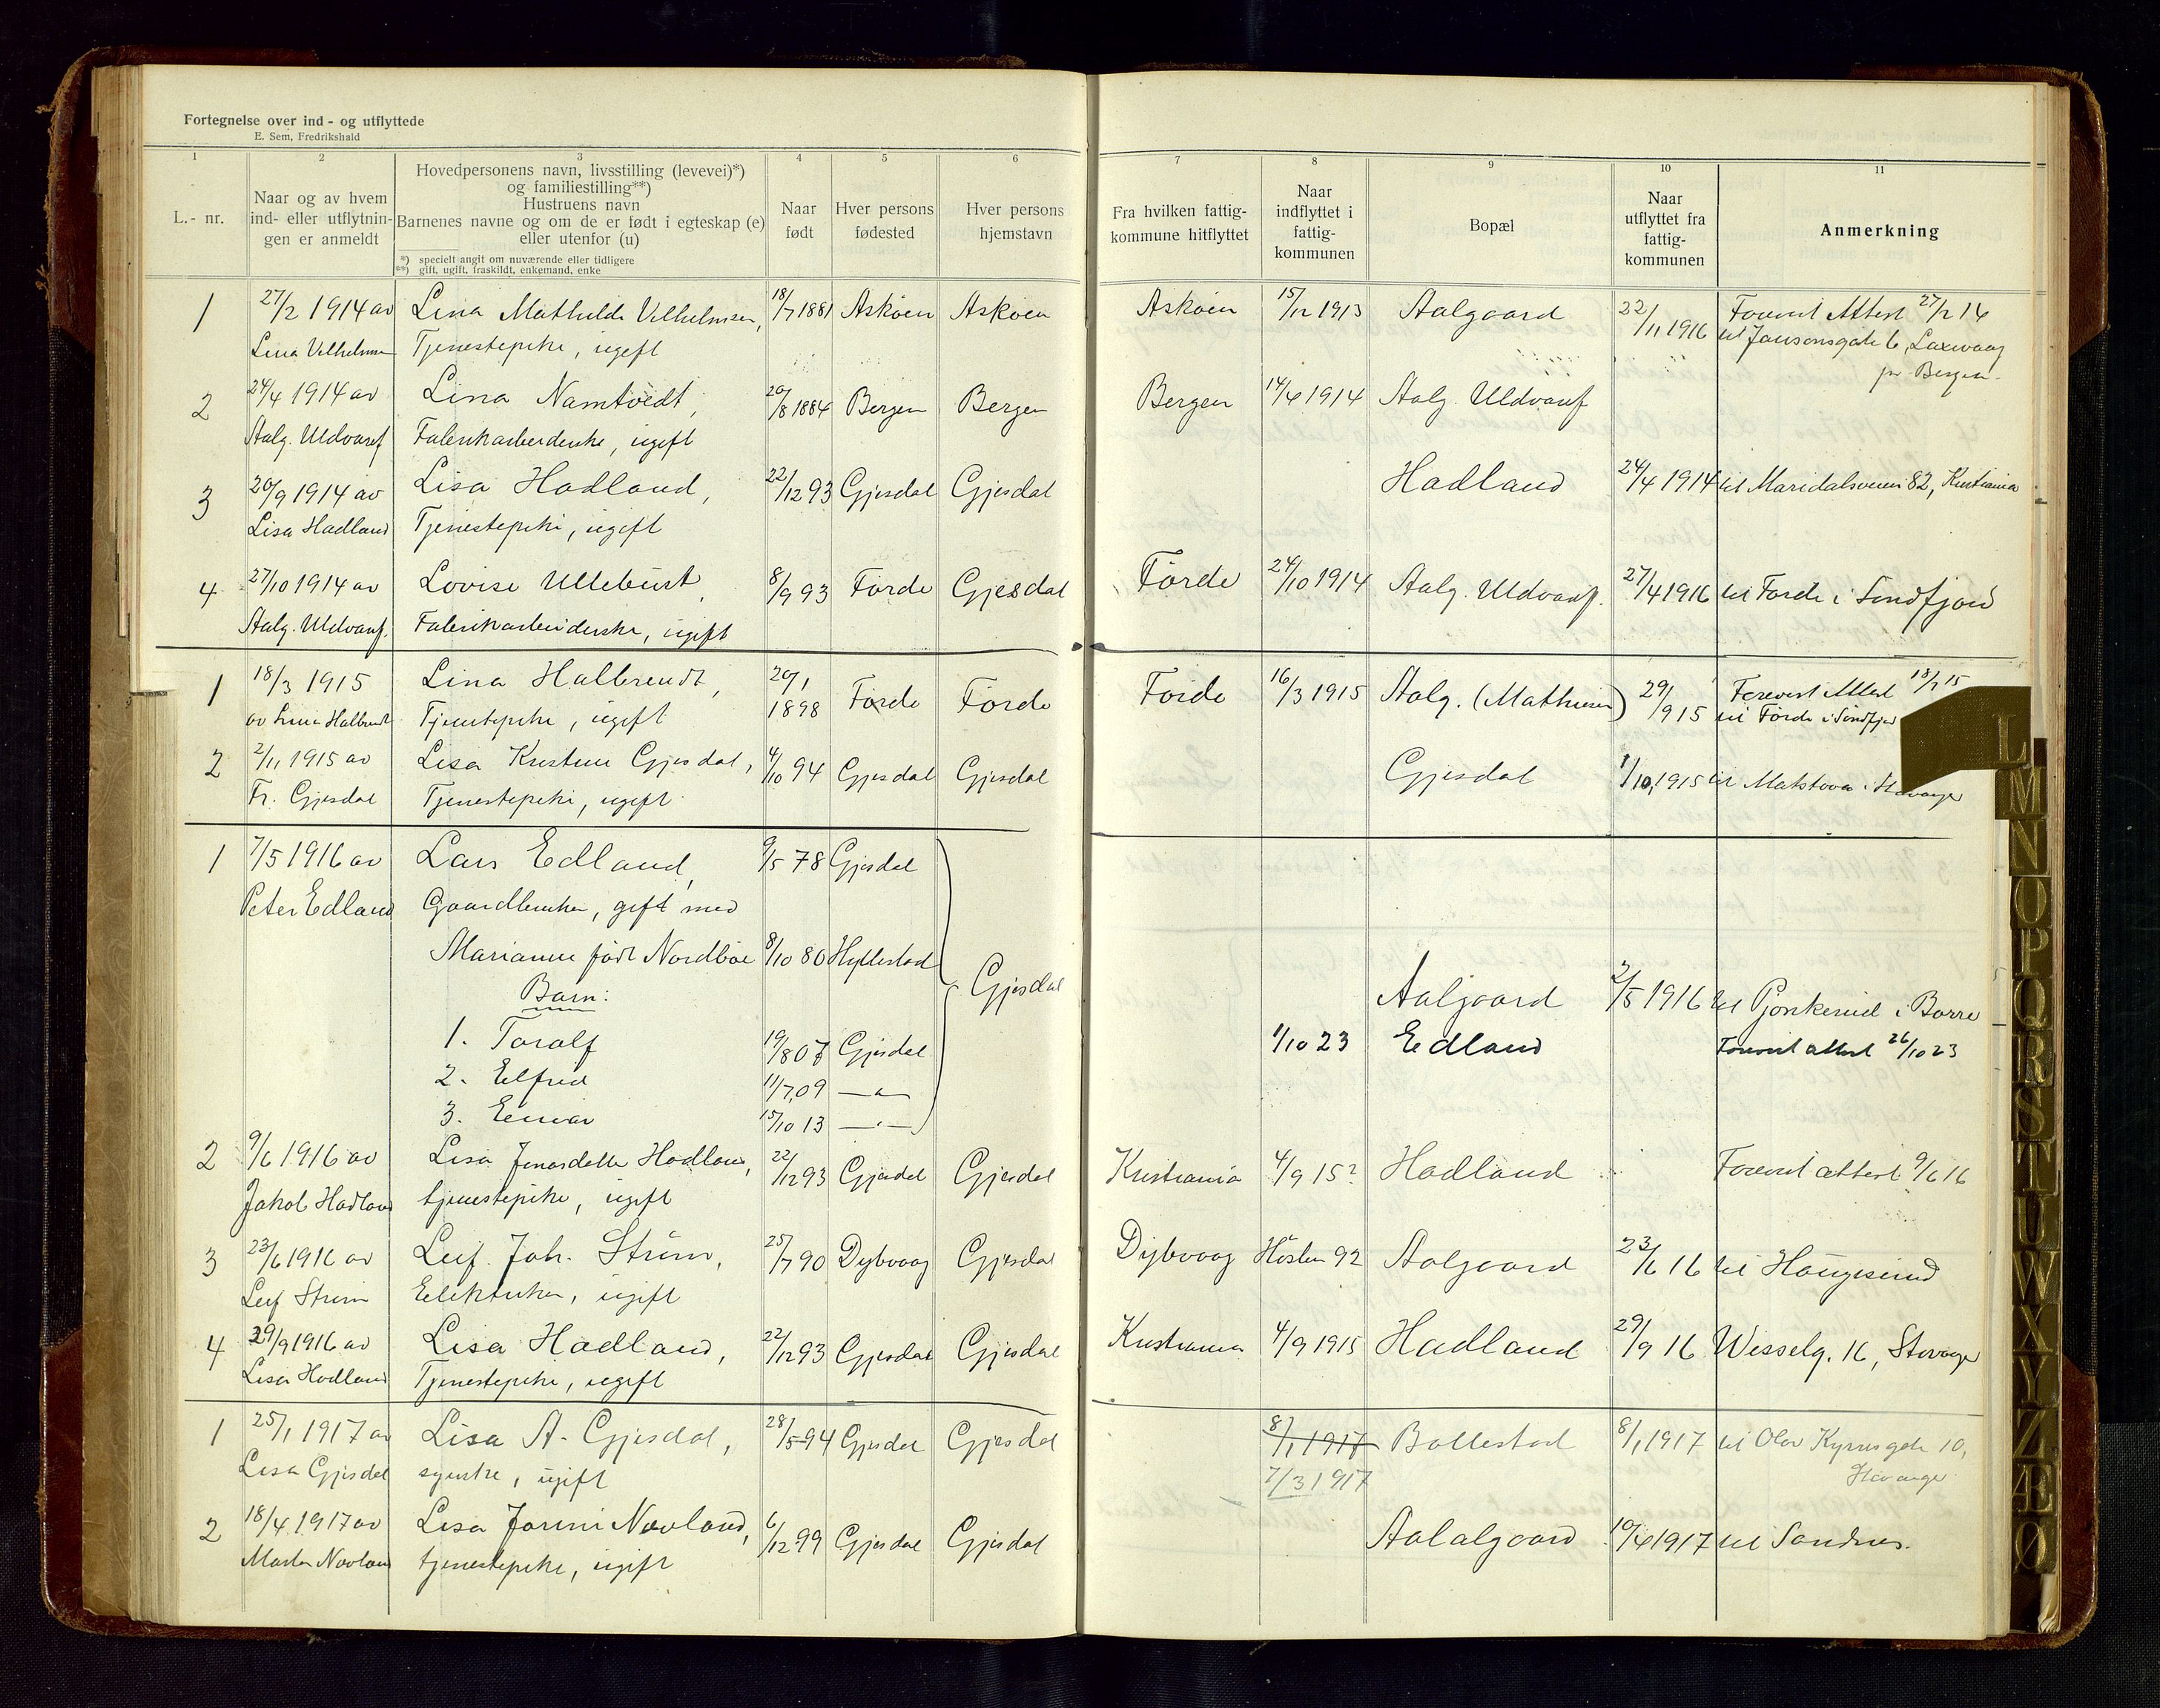 Fortegnelse over ind - og utflyttede
E. Sem, Fredrikshald
1 2 3 4 5 6 7 8 9 10 11
L.- nr.
Naar og av hvem
ind- eller utflytnin-
gen er anmeldt
Hovedpersonens navn, livsstilling (levevei)*)
og familiestilling**)
Hustruens navn
Barnenes navne og om de er født i egteskap (e)
eller utenfor (u)
*) specielt angit om nuværende eller tidligere
**) gift, ugift, fraskildt, enkemand, enke
Naar
født
Hver persons
fødested
Hver persons
hjemstavn
Fra hvilken fattig-
kommune hitflyttet
Naar
indflyttet i
fattig-
kommunen
Bopæl
Naar
utflyttet fra
fattig-
kommunen
Anmerkning
1 27/2 1914 av Lina Mathilde Vilhelmsen, 18/7 1881 Askøen Askøen Askøen 15/12 1913 Aalgaard 22/11 1916 Forevist Attest 27/2 14
Lina Vilhelmsen Tjenestepike, ugift til Jansonsgate 6, Laxevaag
pr. Bergen.
2 24/4 1914 av Lina Namtvedt, 20/8 1884 Bergen Bergen Bergen 14/4 1914 Aalg. Uldvaref
Aalg. Uldvaref Fabrikarbeiderske, ugift
3 20/9 1914 av Lisa Hadland, 22/12 93 Gjesdal Gjesdal Hadland 24/4 1914 til Maridalsveien 82, Kristiania
Lisa Hadland Tjenestepike, ugift
4 27/10 1914 av Lovise Ullebust, 8/9 93 Førde Gjesdal Førde 24/10 1914 Aalg. Uldvaref. 27/4 1916 til Førde i Søndfjord
Aalg. Uldvaref. Fabrikarbeiderske, ugift
1 18/3 1915 Lina Halbrendt, 29/1 Førde Førde Førde 16/3 1915 Aalg. (Mathiesen) 29/9 15 Forevist Attest
av Lina Halbrendt Tjenestepike, ugift 1898 til Førde i Søndfjord
2 2/11 1915 av Lisa Kristine Gjesdal, 4/10 94 Gjesdal Gjesdal Gjesdal 1/10 1915 til Matstova i Stavanger
Fr. Gjesdal Tjenestepike, ugift
1 7/5 1916 av Lars Edland, 9/5 78 Gjesdal
Peter Edland Gaardbruker, gift med
Marianne født Nordbøe 8/10 80 Hyllestad Gjesdal
Barn: Aalgaard 2/5 1916 til i Borre
1. Toralf 19/8 07 Gjesdal 1/10 23 Edland Forevist attest 26/10 23
2. Elfred 11/7 09 — " —
3. Einar 15/10 13 — " —
2 9/6 1916 av Lisa Jonasdatter Hadland, 22/12 93 Gjesdal Gjesdal Kristiania 4/9 15? Hadland Forevist attest 9/6 16
Jakob Hadland tjenestepike, ugift
3 23/6 1916 av Leif Joh. Strøm, 25/7 90 Dybvaag Gjesdal Dybvaag Høsten 92 Aalgaard 23/6 16 til Haugesund
Leif Strøm Elektriker, ugift
4 29/9 1916 av Lisa Hadland, 22/12 93 Gjesdal Gjesdal Kristiania 4/9 1915 Hadland 29/9 16 Wesselg. 16, Stavanger
Lisa Hadland Tjenestepike, ugift
1 25/1 1917 av Lisa A. Gjesdal, 28/5 94 Gjesdal Gjesdal 8/1 1917 Bollestad 8/1 1917 til Olav Kyrresgate 10,
Lisa Gjesdal syerske, ugift 7/3 1917 Stavanger
2 18/4 1917 av Lisa Jorine Navland, 6/12 99 Gjesdal Gjesdal Aalalgaard 10/4 1917 til Sandnes.
Navland tjenestepike, ugift
L
M
N
O
P
Q
R
S
T
U
W
X
Y
Z
Æ
Ø